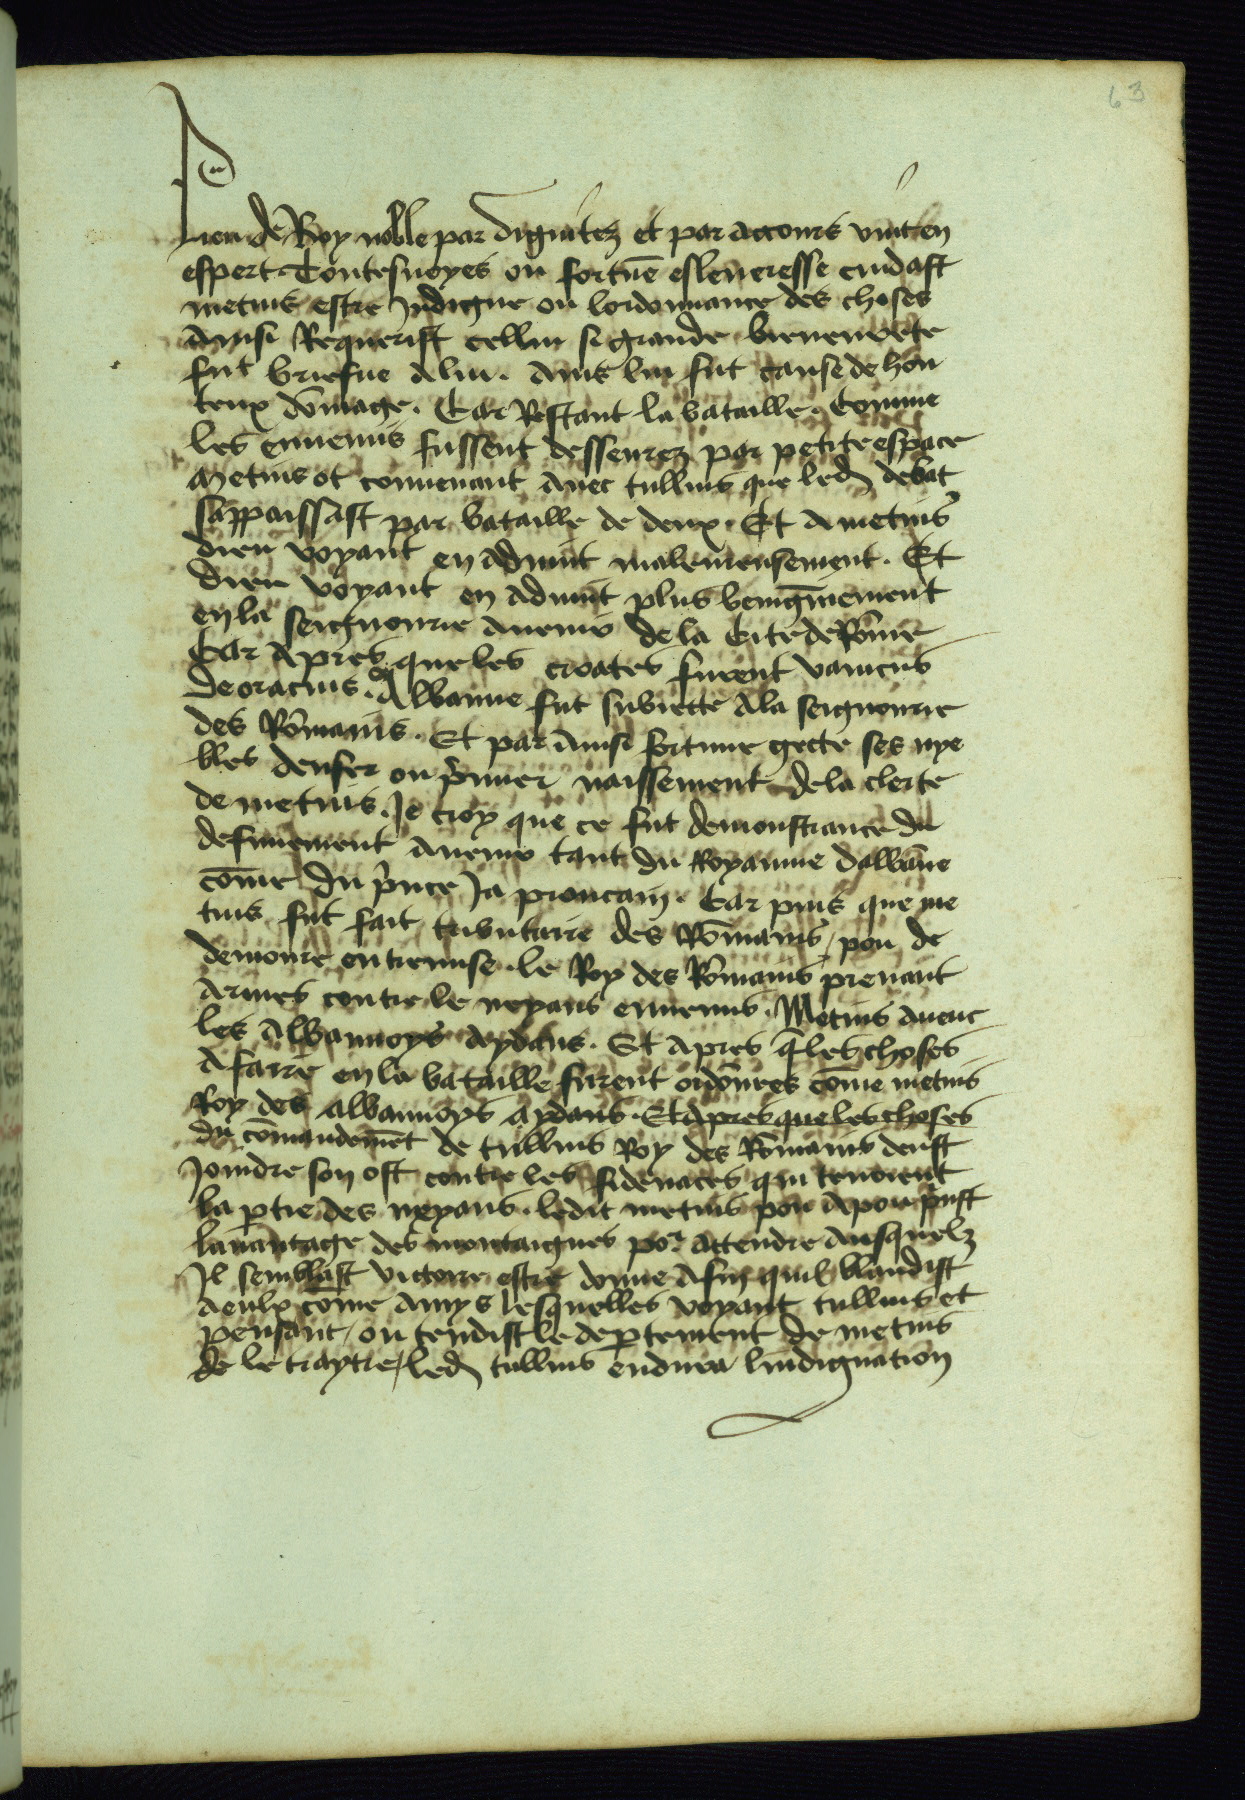 63
lieu de Roy noble par dignitez et par attours vint en
espert. Toutesuoyes ou fortue esleueresse cuidast
metius estre Indigne ou lordonnance des choses
Ainsi Requerist cellui si grande bieneurete
fut briefue a lui. Ains lui fut cause de hon
teux domage. Car Restant la bataille. Comme
les ennemis fussent desseurez par petite espace
metius ot conuenant auec tullius que led debat
sappaissast par bataille de deux. Et a metius
dieu voyant en aduint maleureusement. Et
dieu voyant en aduint plus benignement
en la seignourie auenir de la Cite de Rome
Car apres que les croates furent vaincus
de oracius. Albanne fut subiette a la seignourie
des Romains. Et par ainsi fortune gecte ses nye
bles denfer ou primier naissement de la clerte
de metius. Je croy que ce fut demonstrance du
definement auenir tant du Royaume dalbane
come du prince Ja prouchain. Car puis que me
tius fut fait tributaire des Romains / pou de
demoure entremise. le Roy des Romains prenant
armes contre le veyans ennemis. Metius auenc
les Albannoys aydans. Et apres q les choses
a faire en la bataille furent ordonnees come metius
Roy des albannoys aydans. Et apres que les choses
du comandemet de tullius Roy des Romains deust
Joindre son ost contre les fidenates qui tenoient
la ptie des veyans. ledit metius pou a pou prist
lauantage des montaignes por attendre ausquelz
Il semblast victoire estre donne afin quil blandist
a eulx come amys lesquelles voyant tullius et
pensant / ou tendist le deptement de metius
de le traytre / led tullius endura lindignation